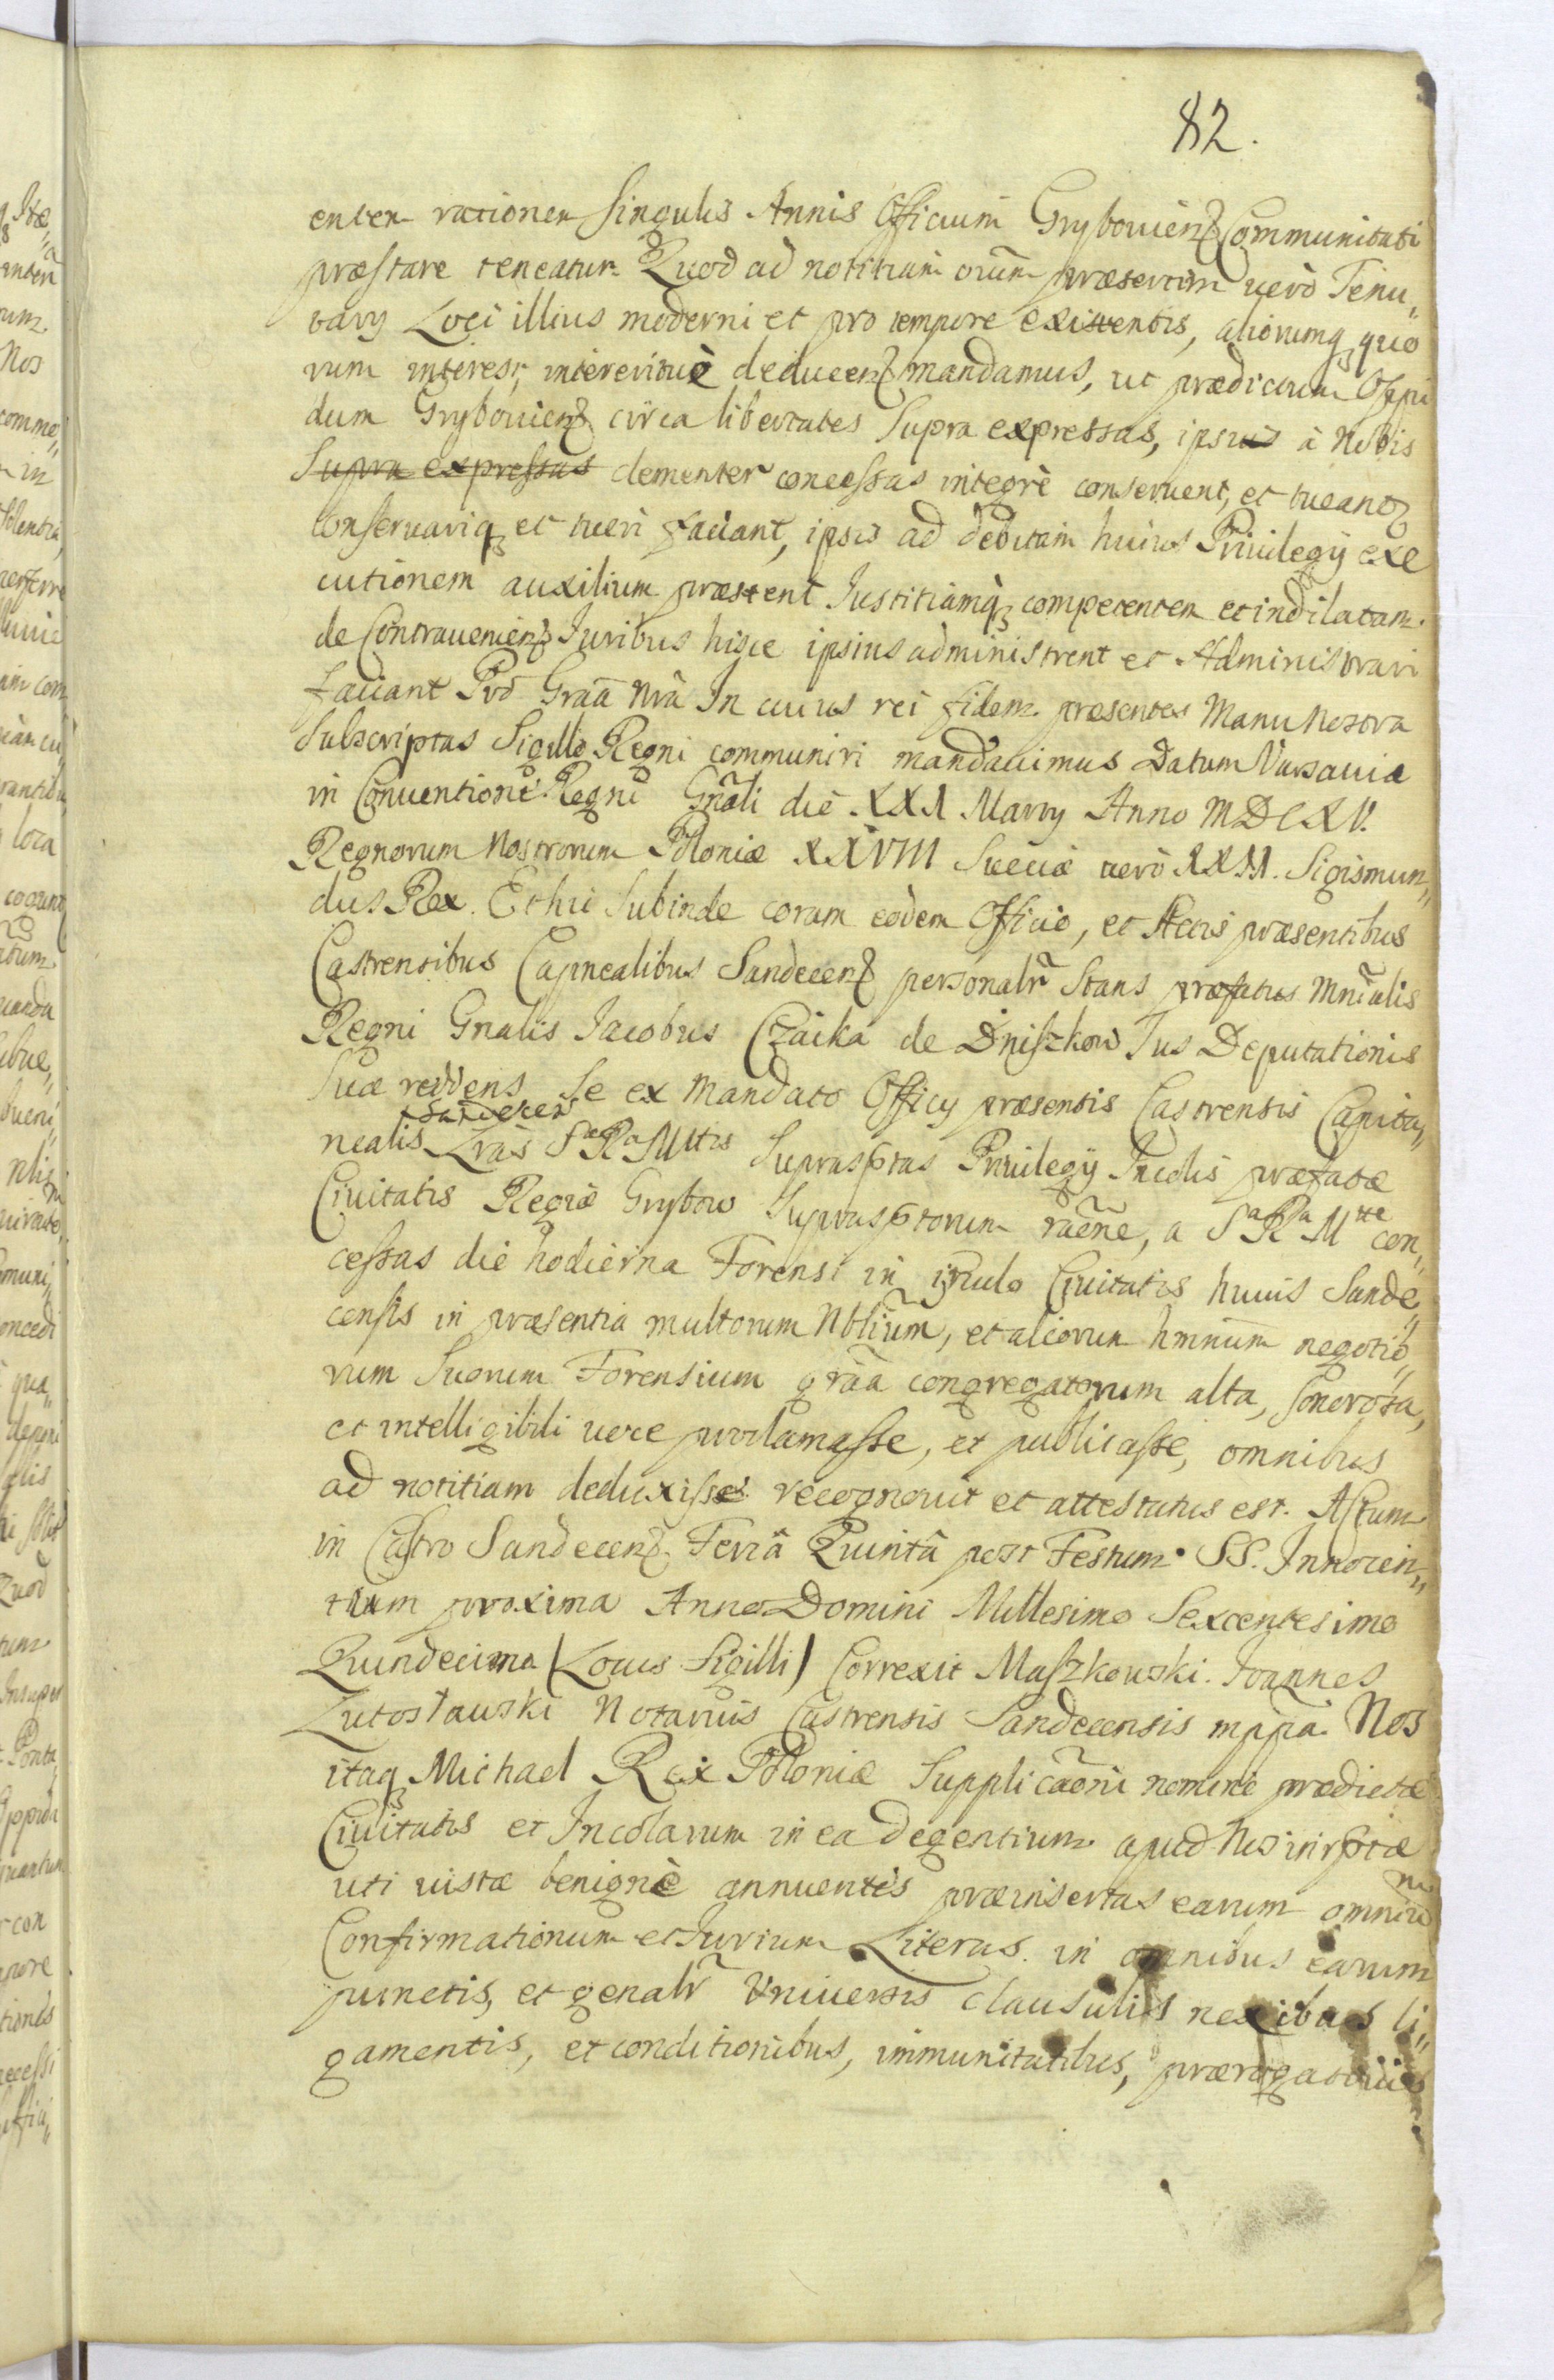 82.
enten rationen singulis Annis Officium Gryboviens Communitati
præstare teneatur. Quod ad notitiam oium præsertim verò Tenu„
tarij Loci illius moderni et pro tempore existentis, aliorumq quo
rum interest, intereritvè deducens mandamus, ut prædictum Oppi
dum Gryboviens circa libertates supra expressas, ipsis à Nobis
supra expressas clementer concessas integrè conservent, et tueant
conservariq et tueri faciant, ipsis ad debitam huius Privilegij exe
cutionem auxilium præstent Iustitiamq competentem et indilatam
de Contraveniens Iuribus hisce ipsius administrent et Administrari
faciant Pro Graa Nrã In cuius rei fidem præsentes Manu Nostra
Subscriptas Sigillo Regni communiri mandavimus Datum Varsaviæ
in Conventione Regni Gnãli die XXI Martij Anno MDCXV.
Regnorum Nostrorum Poloniæ XXVIII Sueciæ verò XXII. Sigismun„
dus Rex. Et hic Subinde coram eodem Officio, et Actis præsentibus
Castrensibus Capnealibus Sandecens personalr Stans præfatus Mnrialis
Regni Gnalis Iacobus Czaika de Dniszkow Ius Deputationis
Suæ reddens Se ex Mandato Officij præsentis Castrensis Capita„
Sandecen
nealis Lras S R Mttis Suprasptas Privilegij Incolis præfatæ
Civitatis Regiæ Grybow Suprasptorum raẽne, a S R Mtte con„
cessas die hodierna Forensi in circulo Civitatis huius Sande„
censis in præsentia multorum Nblium, et aliorum hminum negotio„
rum Suorum Forensium grãa congregatorum alta, Sonorosa,
et intelligibili voce proclamasse, et publicasse, omnibus
ad notitiam deduxisse recognovit et attestatus est. Actum
in Castro Sandecens. Feriâ Quintâ post Festum SS. Innocen„
tium proxima Anno Domini Millesimo Sexcentesimo
Quindecimo (Locus Sigilli) Correxit Maszkowski. Ioannes
Lutosławski Notarius Castrensis Sandecensis mppa. Nos
itaq Michael Rex Poloniæ Supplicãoni nomine prædictæ
Civitatis et Incolarum in ea degentium apud Nos
uti iustæ benignè annuentes præinsertas earum omniu
m
Confirmationum et Iurium Literas in omnibus earum
punctis, et genalr Universis clausulis nexibus li„
gamentis, et conditionibus, immunitatibus, prærogativis